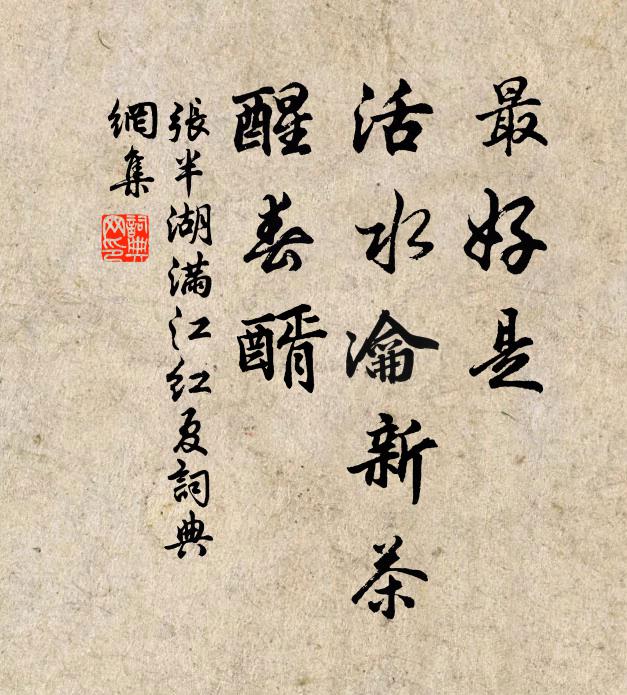 最好是
活水瀹新茶
醒春醑
張半湖滿江紅夏詞典
網集
詞典
网印